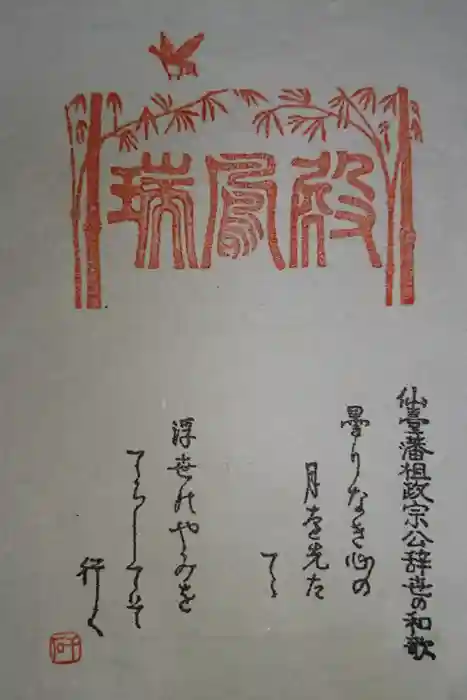 瑞鳳殿
仙臺藩祖政宗公辞世の和歌
曇りなき心の
月を先だ
てゝ
浮世のやみを
てらしてぞ
行く